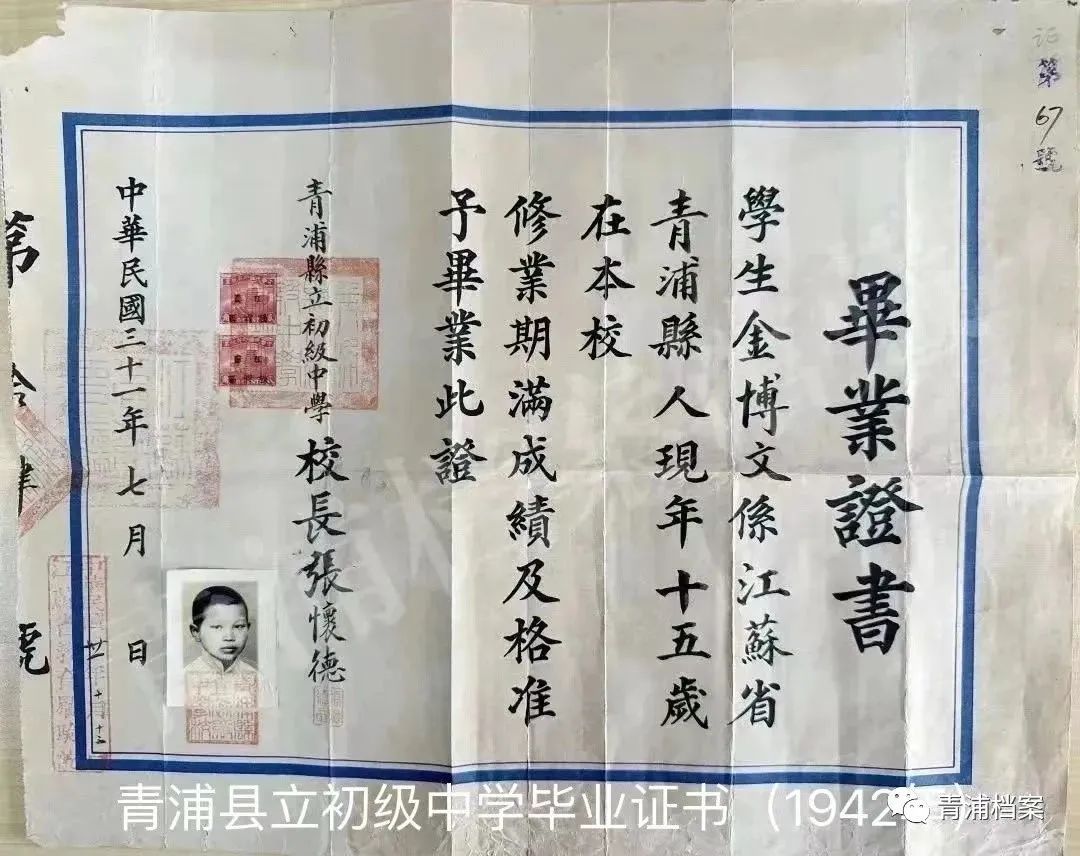 证第67號
畢業證書
學生金博文係江蘇省
青浦縣人現年十五歲
在本校
修業期滿成績及格准
予畢業此證
青浦縣立初級中學校長張懷德
中華民國三十一年七月 日
第 號
青浦县立初级中学毕业证书（1942
青浦档案